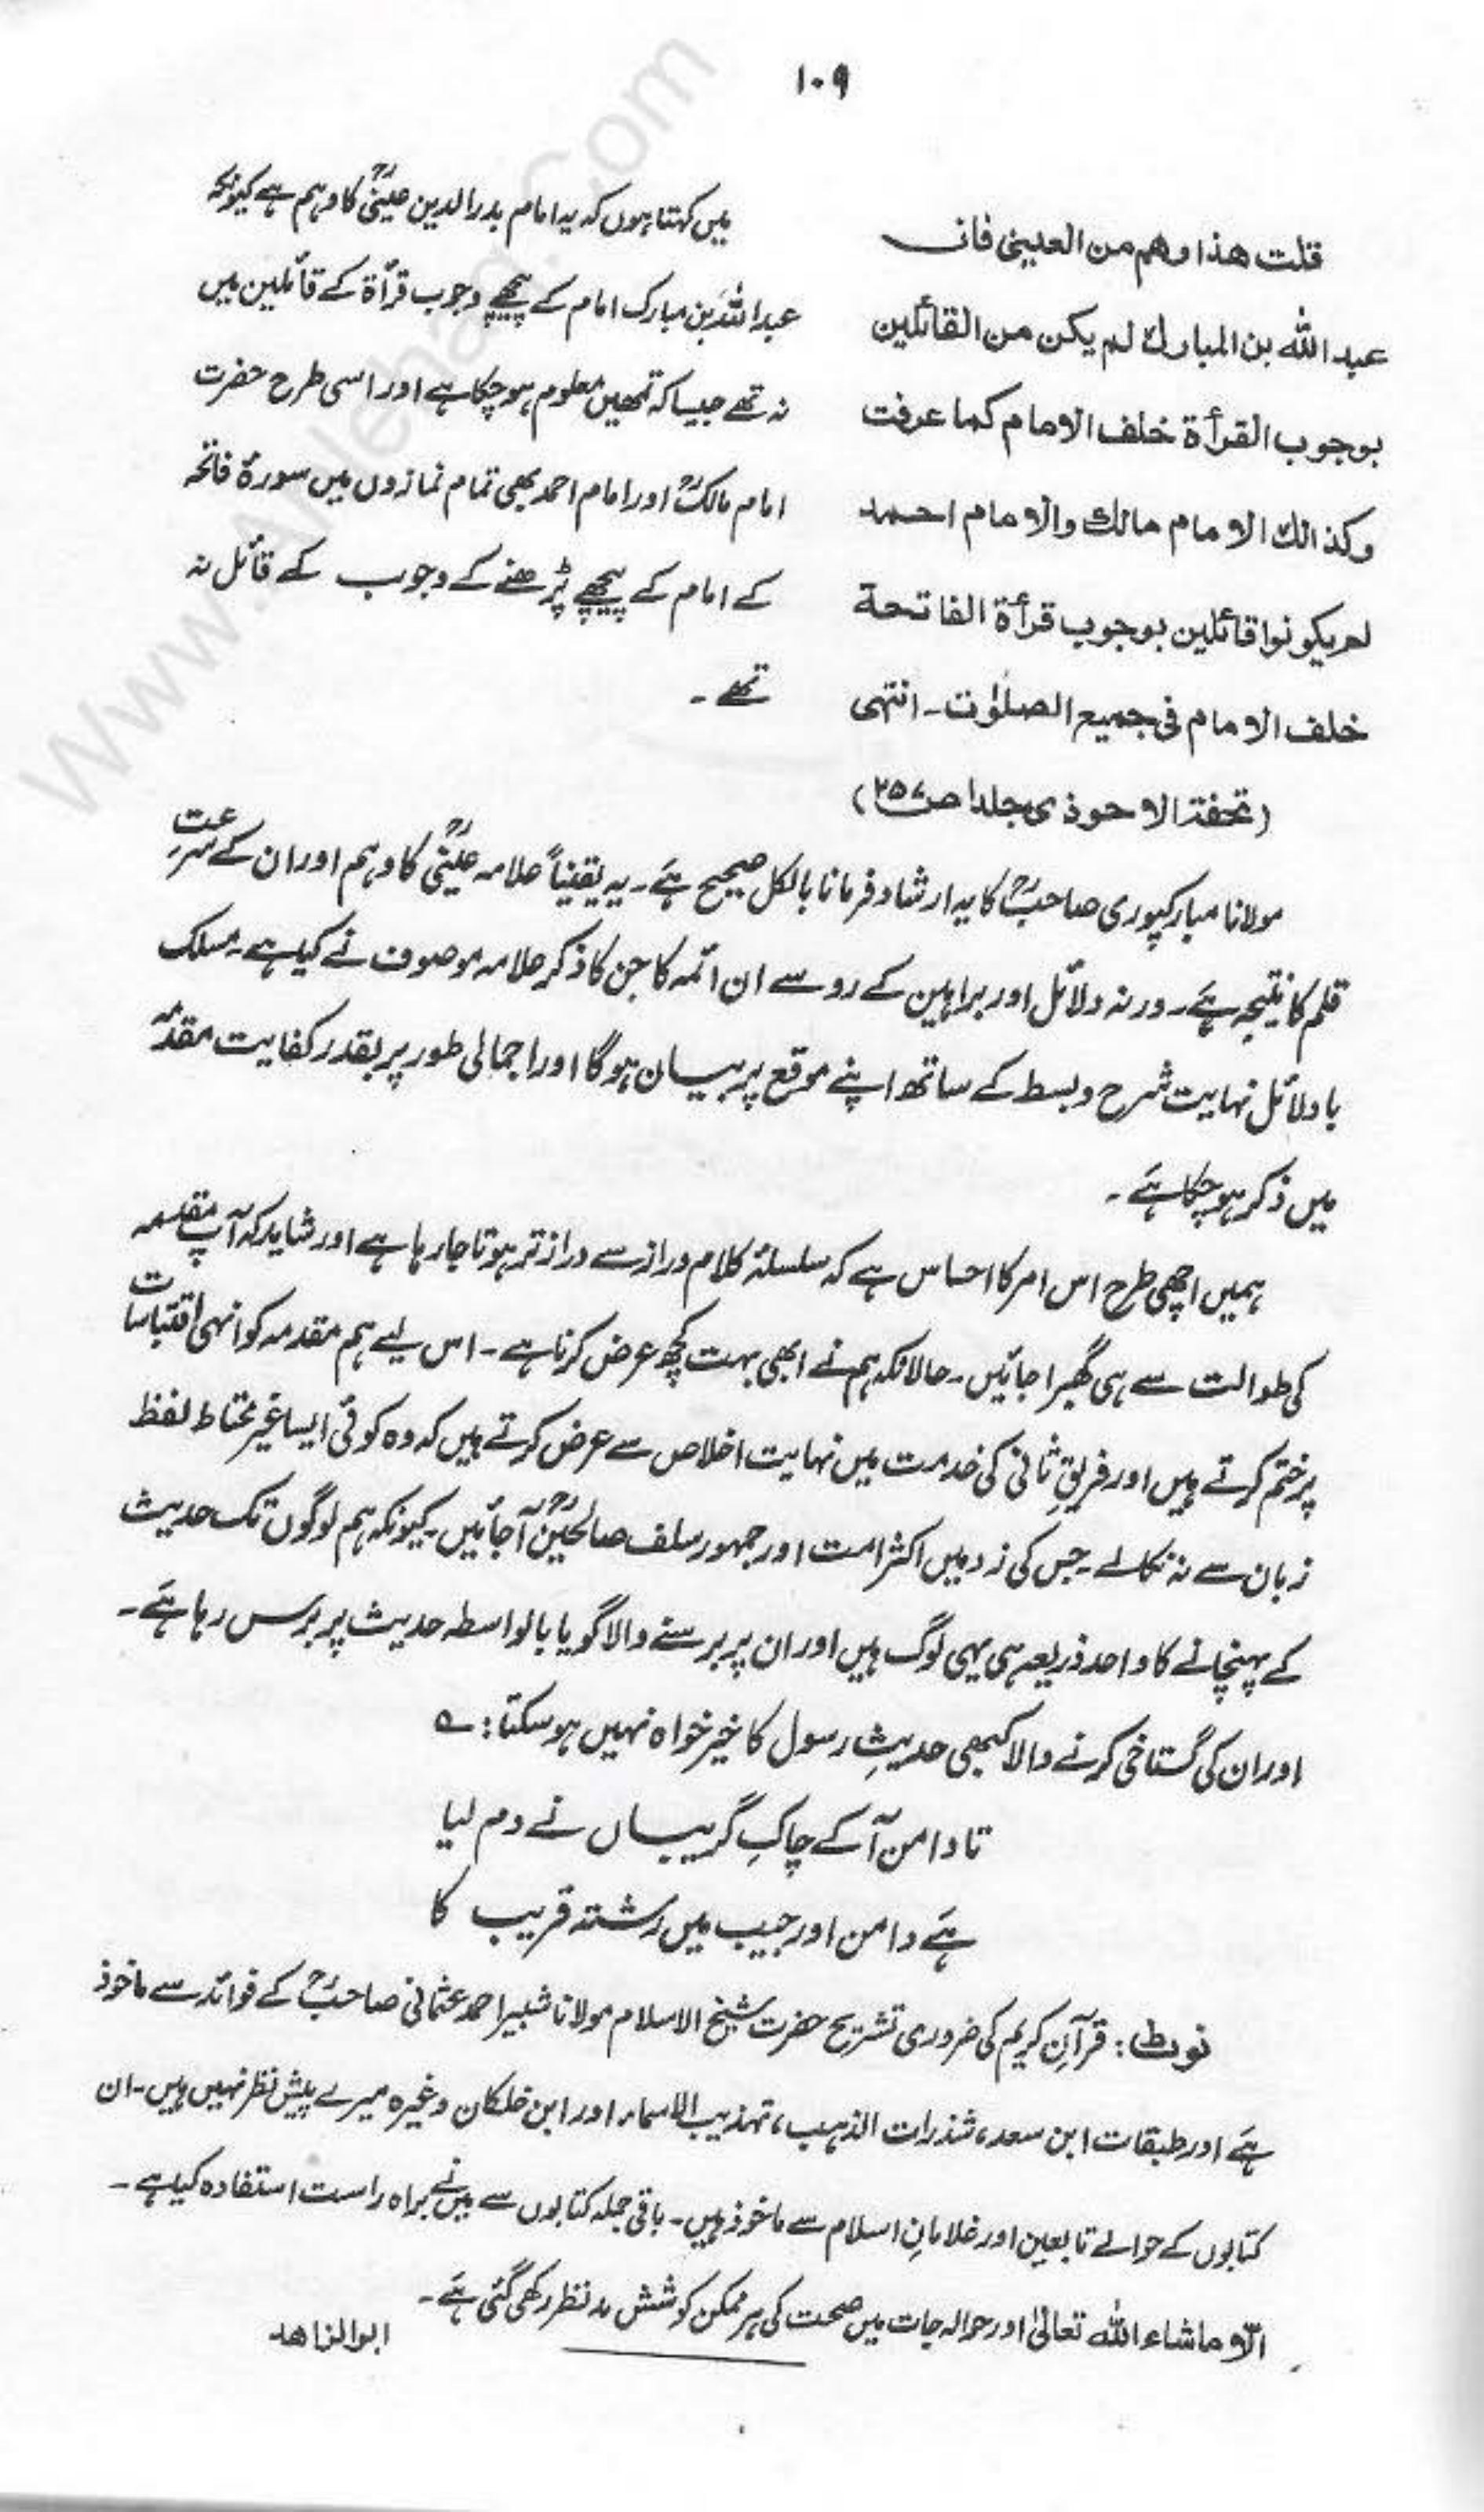 ۱۰۹
قلت هذا وهم من العينى فان
عبد الله بن المبارك لم يكن من القائلين
بوجوب القرأة خلف الامام كما عرفت
وكذالك الامام مالك والامام احمد
لم يكونوا قائلين بوجوب قرأة الفاتحة
خلف الامام فى جميع الصلوٰت۔ انتهى
(تحفة الاحوذى جلد۱ ص۲۵۷)
میں کہتا ہوں کہ یہ امام بدر الدین عینیؒ کا وہم ہے کیونکہ
عبداللہؒ بن مبارک امام کے پیچھے وجوب قرأۃ کے قائلین میں
نہ تھے جیسا کہ تمھیں معلوم ہو چکا ہے اور اسی طرح حضرت
امام مالکؒ اور امام احمد بھی تمام نمازوں میں سورۂ فاتحہ
کے امام کے پیچھے پڑھنے کے وجوب کے قائل نہ
تھے۔
مولانا مبارکپوری صاحبؒ کا یہ ارشاد فرمانا بالکل صحیح ہَے۔ یہ یقیناً علامہ عینیؒ کا وہم اور ان کے سرعت
قلم کا نتیجہ ہَے۔ ورنہ دلائل اور براہین کے رو سے ان ائمہ کا جن کا ذکر علامہ موصوف نے کیا ہے۔ مسلک
بادلائل نہایت شرح وبسط کے ساتھ اپنے موقع پر بیان ہوگا اور اجمالی طور پر بقدر کفایت مقدمہ
میں ذکر ہو چکا ہَے۔
ہمیں اچھی طرح اس امر کا احساس ہے کہ سلسلۂ کلام دراز سے دراز تر ہوتا جا رہا ہے اور شاید کہ آپ مقدمہ
کی طوالت سے ہی گھبرا جائیں۔ حالانکہ ہم نے ابھی بہت کچھ عرض کرنا ہے۔ اس لیے ہم مقدمہ کو انہی اقتباسات
پر ختم کرتے ہیں اور فریقِ ثانی کی خدمت میں نہایت اخلاص سے عرض کرتے ہیں کہ وہ کوئی ایسا غیر محتاط لفظ
زبان سے نہ نکالے جس کی زد میں اکثر امت اور جمہور سلف صالحینؒ آجائیں۔ کیونکہ ہم لوگوں تک حدیث
کے پہنچانے کا واحد ذریعہ ہی یہی لوگ ہیں اور ان پر برسنے والا گویا بالواسطہ حدیث پر برس رہا ہَے۔
اور ان کی گستاخی کرنے والا کبھی حدیثِ رسول کا خیر خواہ نہیں ہو سکتا: ؎
تا دامن آکے چاکِ گریباں نے دم لیا
ہَے دامن اور جیب میں رشتہ قریب کا
نوٹ: قرآنِ کریم کی ضروری تشریح حضرت شیخ الاسلام مولانا شبیر احمد عثمانی صاحبؒ کے فوائد سے ماخوذ
ہَے اور طبقات ابن سعد، شذرات الذہب، تہذیب الاسماء اور ابن خلکان وغیرہ میرے پیش نظر نہیں ہیں۔ ان
کتابوں کے حوالے تابعین اور غلامانِ اسلام سے ماخوذ ہیں۔ باقی جملہ کتابوں سے میں نے براہ راست استفادہ کیا ہے۔
الّا ماشاء اللہ تعالیٰ اور حوالہ جات میں صحت کی ہر ممکن کوشش مدنظر رکھی گئی ہَے۔
ابوالزاهد